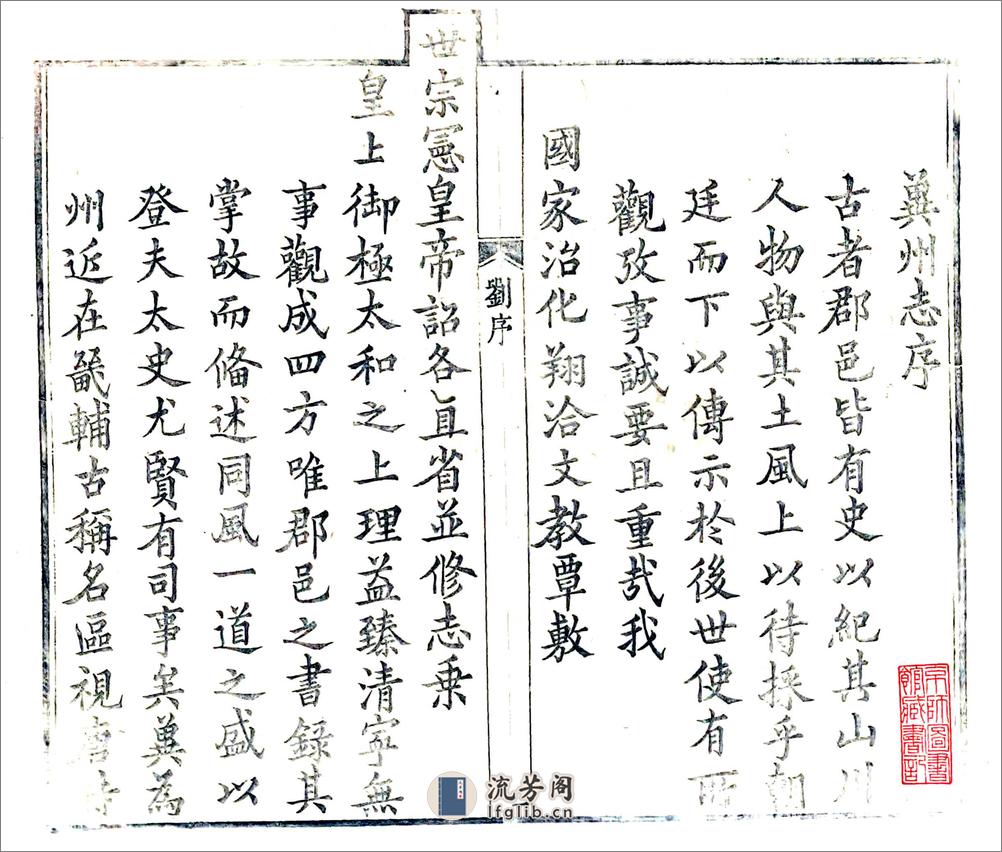 冀州志序
古者郡邑皆有史以紀其山川
人物與其土風上以待採乎朝
廷而下以傳示於後世使有所
觀攷事誠要且重哉我
國家治化翔洽文教覃敷
劉序
世宗憲皇帝詔各直省並修志乗
皇上御極太和之上理益臻清寧無
事觀成四方唯郡邑之書錄其
掌故而備述同風一道之盛以
登夫太史尤賢有司事矣冀為
州近在畿輔古稱名區視唐時
京師圖書
館藏書記
流芳阁
lfglib.cn